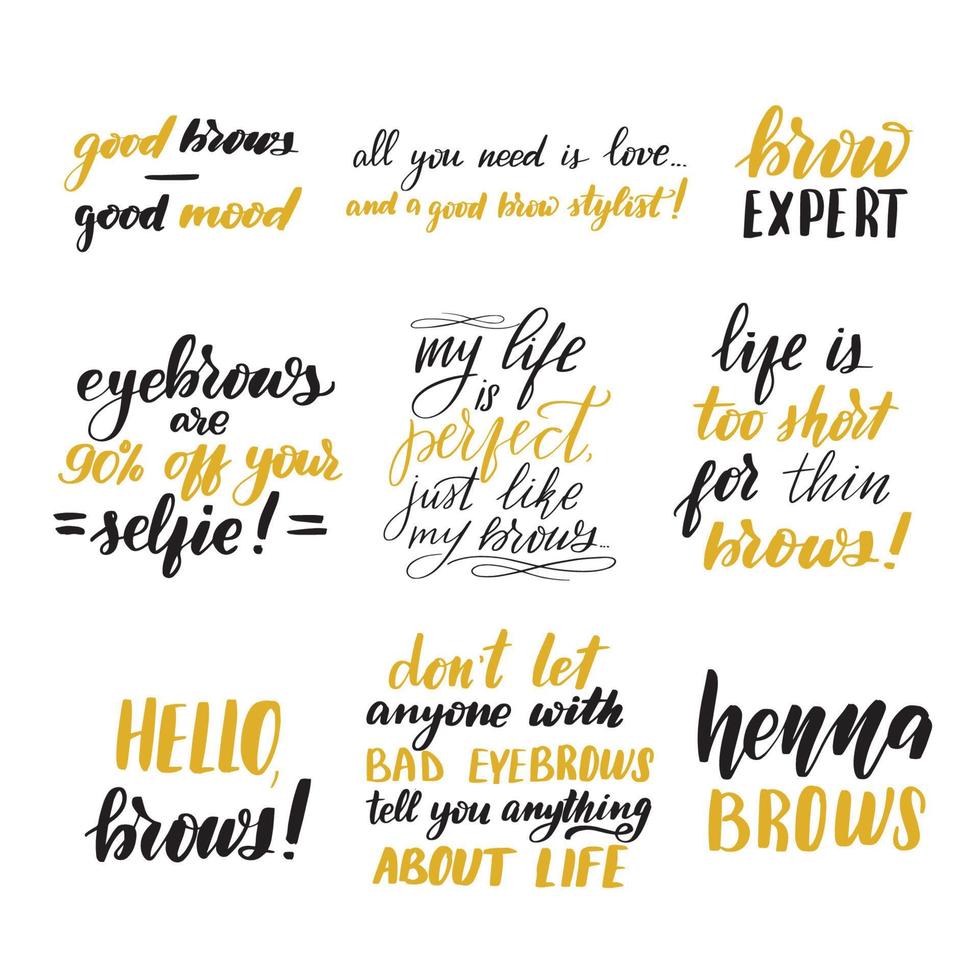 good brows
—
good mood
all you need is love...
and a good brow stylist!
brow
EXPERT
eyebrows
are
90% off your
=selfie!=
my life
is
perfect,
just like
my brows...
life is
too short
for thin
brows!
HELLO,
brows!
don't let
anyone with
BAD EYEBROWS
tell you anything
ABOUT LIFE
henna
BROWS